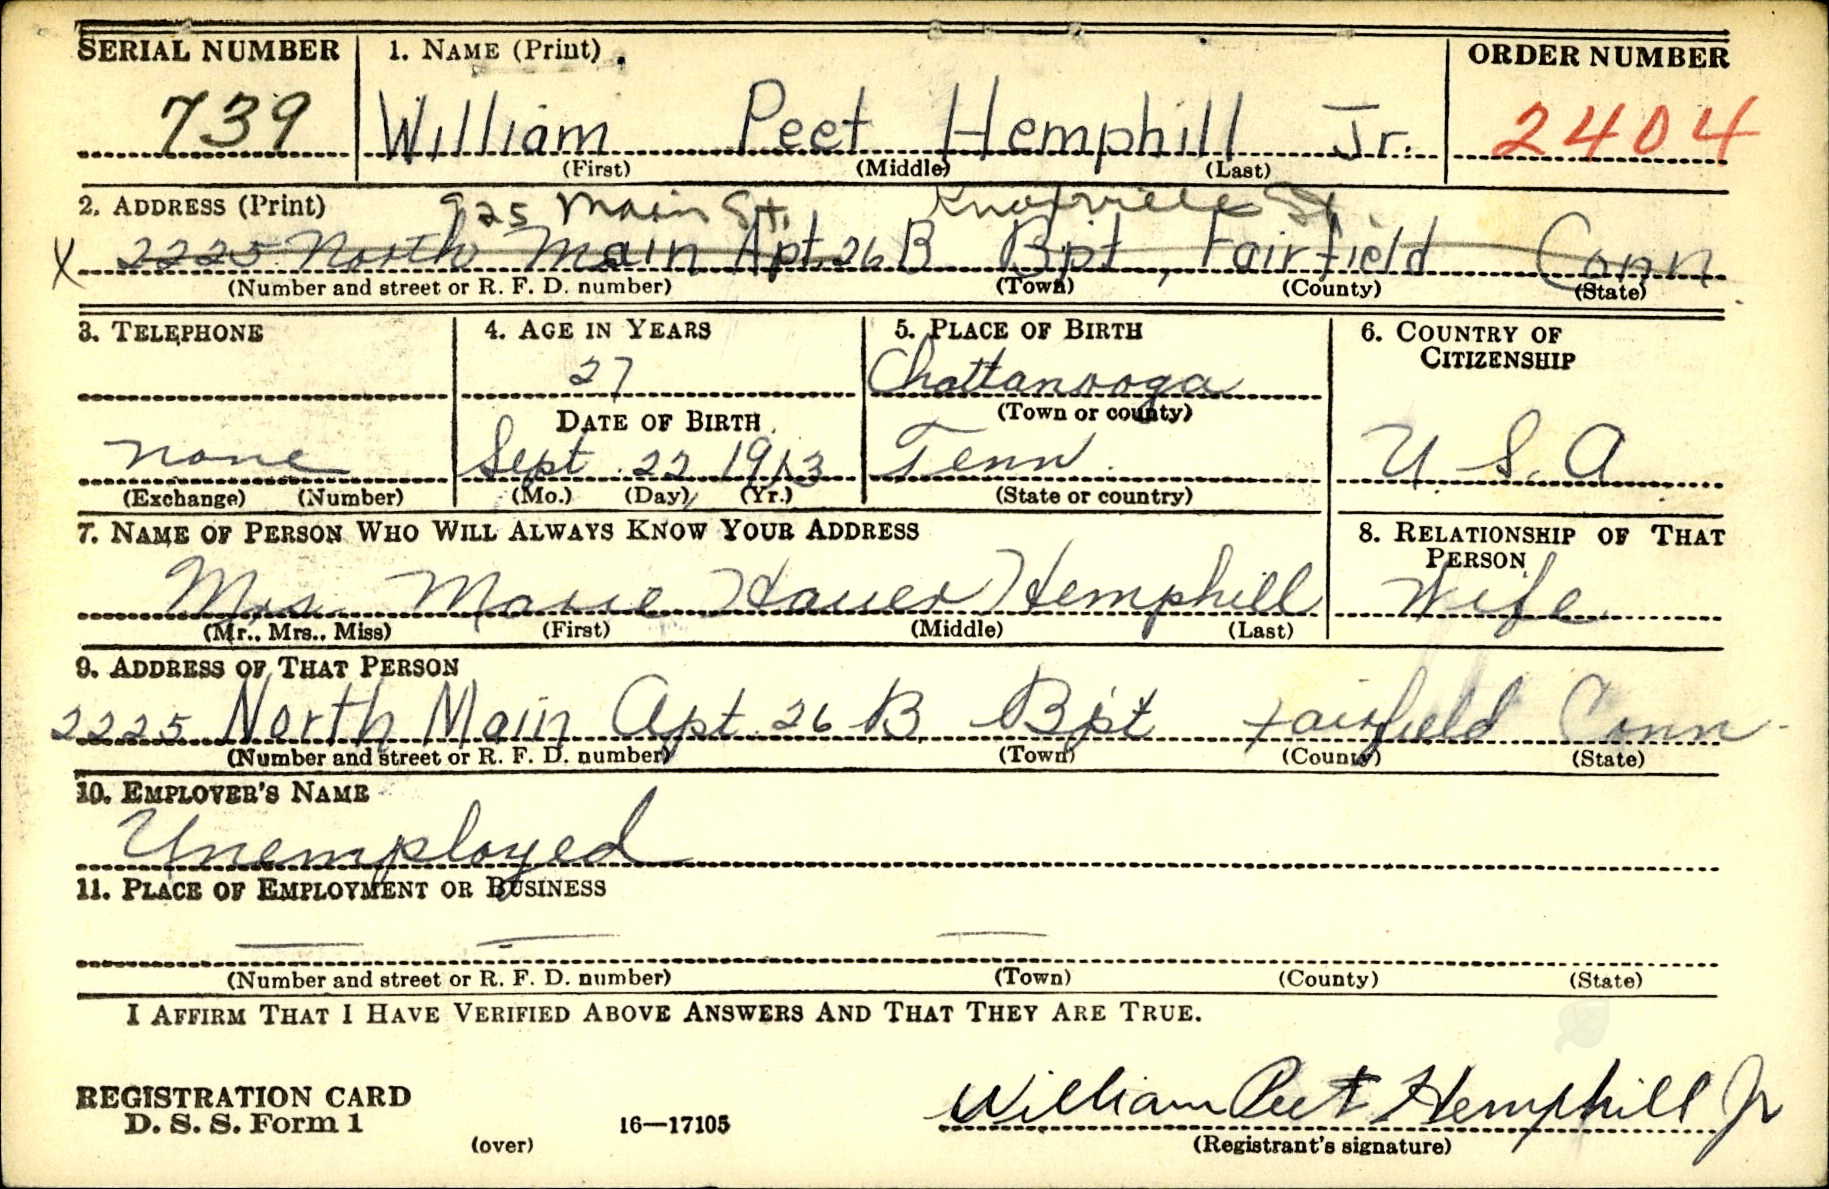 SERIAL NUMBER 1. NAME (Print) ORDER NUMBER
739 William Peet Hemphill Jr. 2404
(First) (Middle) (Last)
2. ADDRESS (Print) 925 Main St. Knoxville
X 2225 North Main Apt. 26 B Bpt, Fairfield Conn
(Number and street or R. F. D. number) (Town) (County) (State)
3. TELEPHONE 4. AGE IN YEARS 5. PLACE OF BIRTH 6. COUNTRY OF
CITIZENSHIP
27 Chattanooga
DATE OF BIRTH (Town or county)
none Sept 22 1913 Tenn. U. S. A
(Exchange) (Number) (Mo.) (Day) (Yr.) (State or country)
7. NAME OF PERSON WHO WILL ALWAYS KNOW YOUR ADDRESS 8. RELATIONSHIP OF THAT
PERSON
Mrs. Marie Hauer Hemphill Wife
(Mr., Mrs., Miss) (First) (Middle) (Last)
9. ADDRESS OF THAT PERSON
2225 North Main Apt. 26 B Bpt Fairfield Conn
(Number and street or R. F. D. number) (Town) (County) (State)
10. EMPLOYER'S NAME
Unemployed
11. PLACE OF EMPLOYMENT OR BUSINESS
— — —
(Number and street or R. F. D. number) (Town) (County) (State)
I AFFIRM THAT I HAVE VERIFIED ABOVE ANSWERS AND THAT THEY ARE TRUE.
REGISTRATION CARD William Peet Hemphill Jr
D. S. S. Form 1 16—17105
(over) (Registrant's signature)